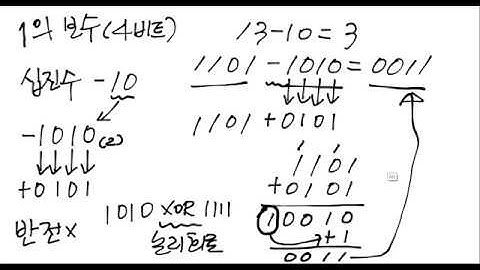 1의 보수(4비트)
십진수 -10
-1010(2)
+0101
반전x
1010 XOR 1111
논리회로
13-10=3
1101 -1010=0011
1101 +0101
1 1
1101
+0101
10010
+1
0011